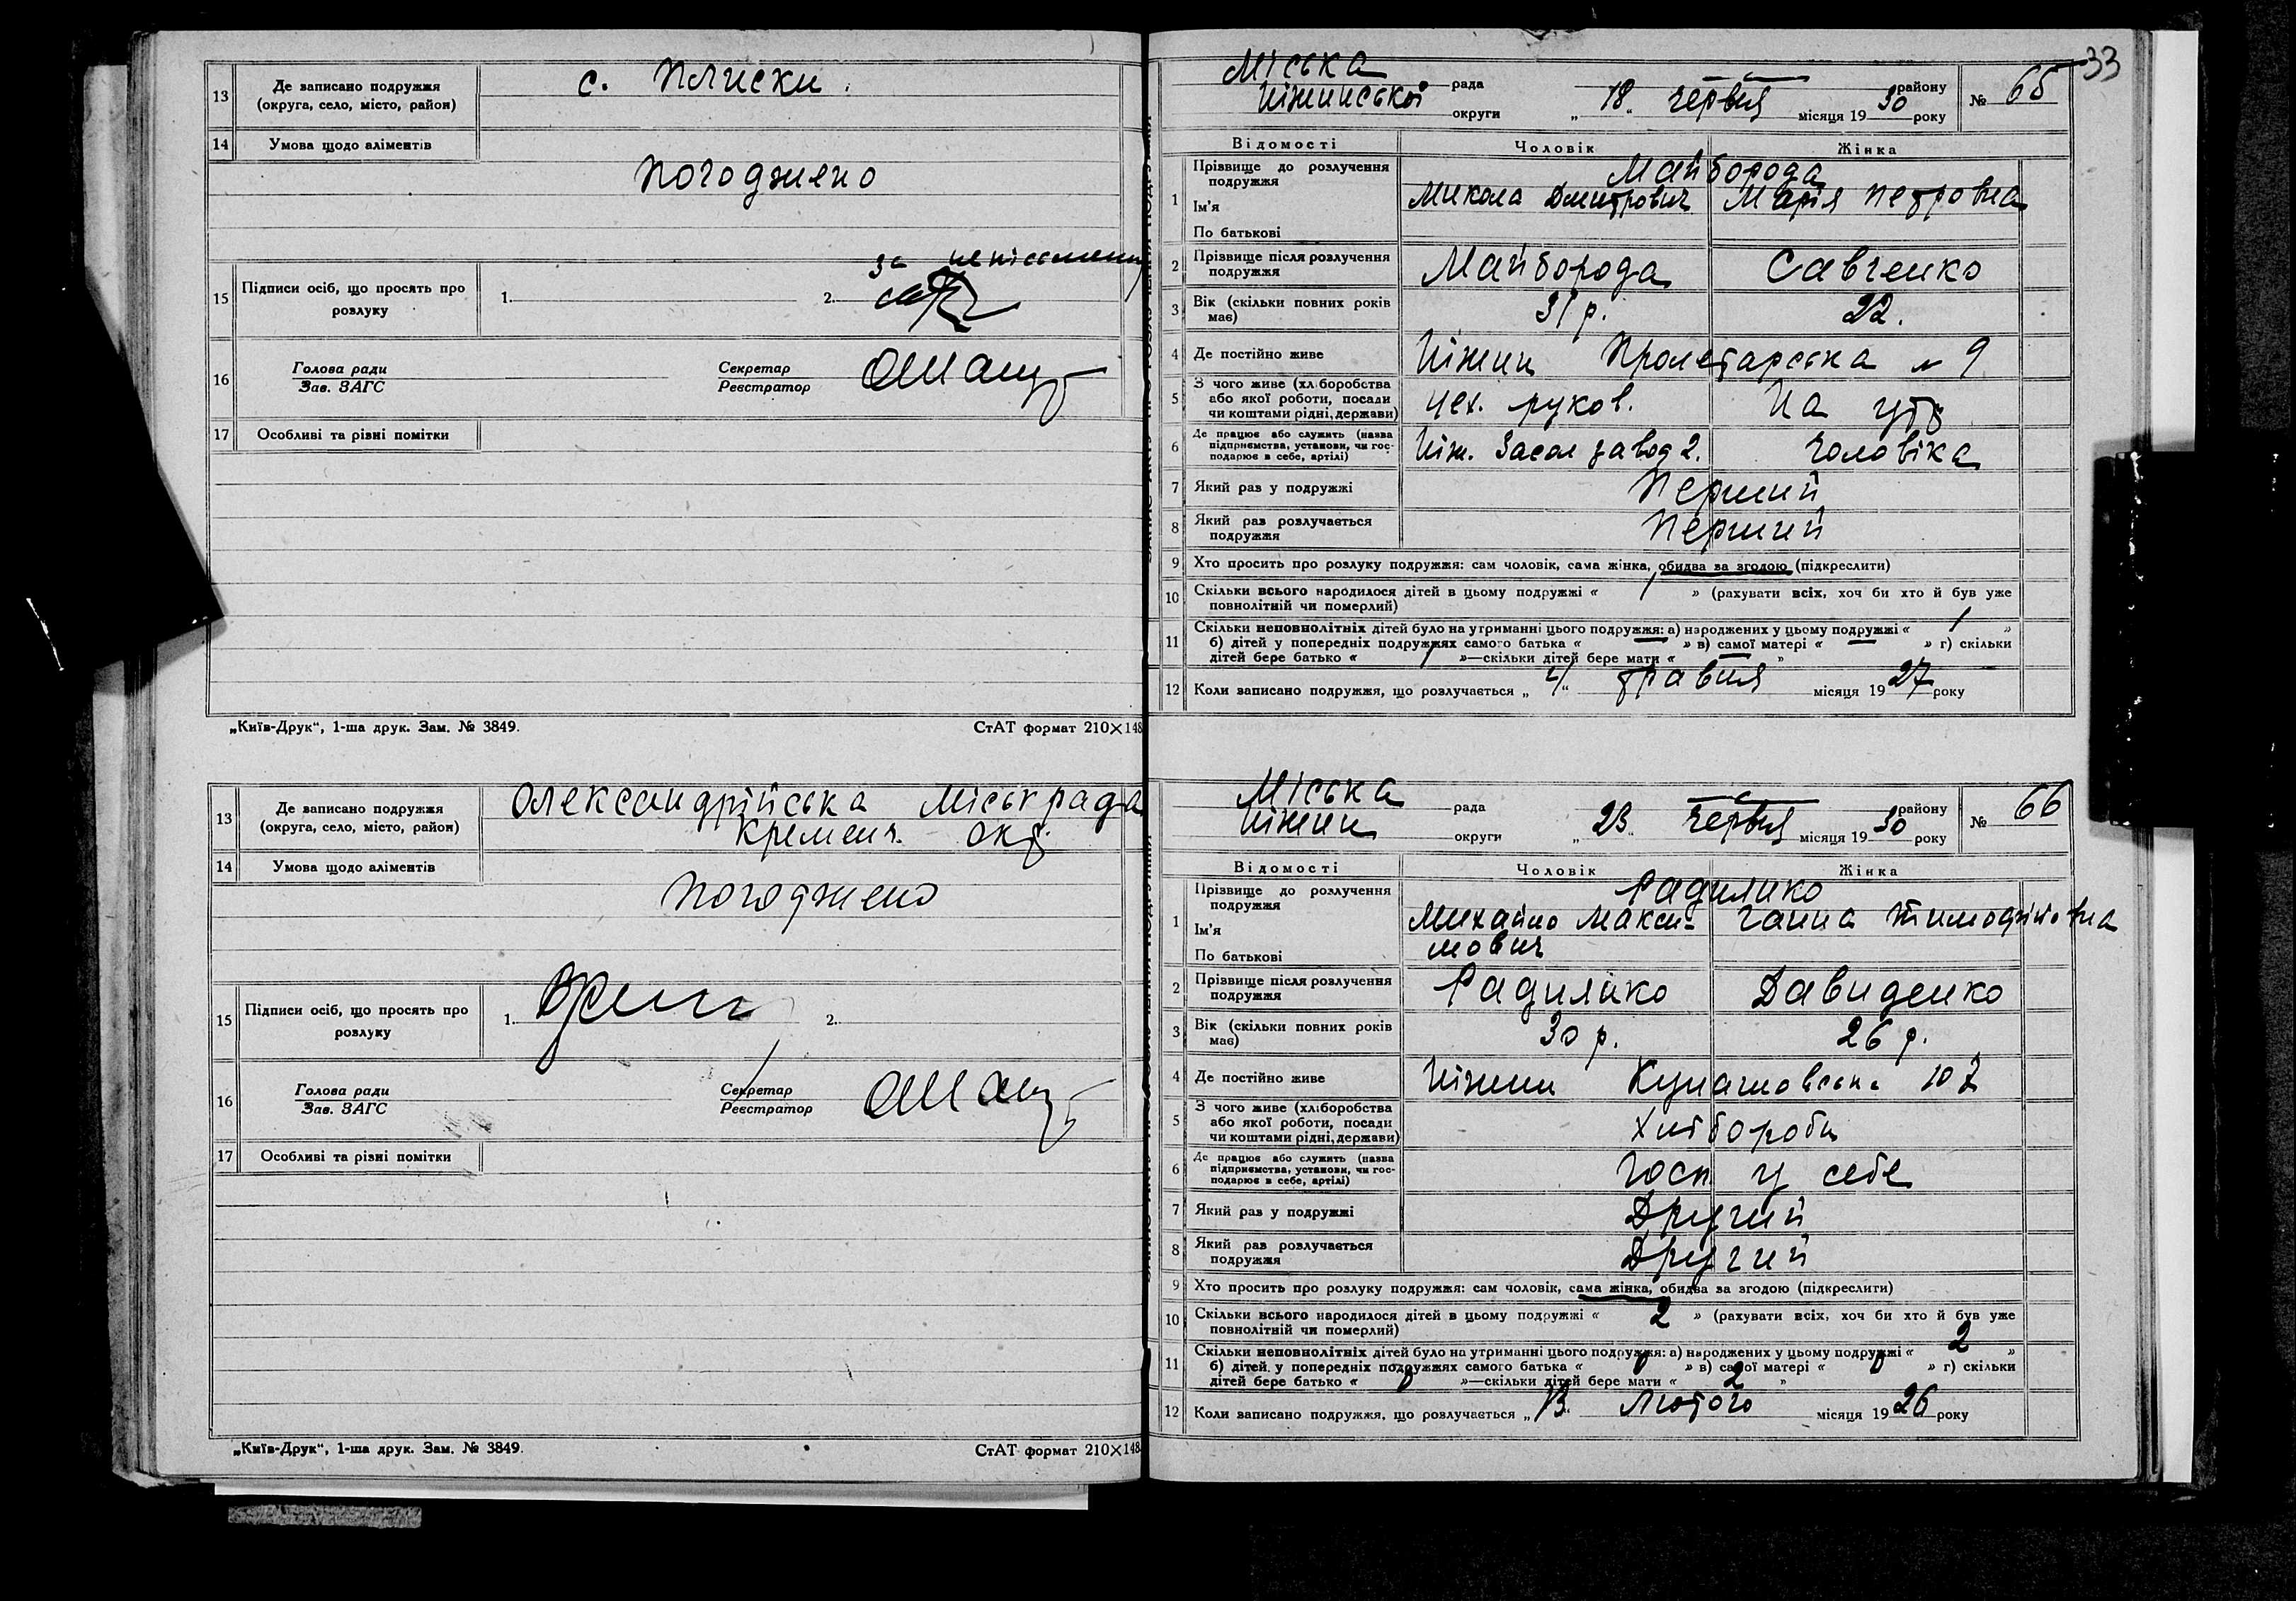 13 Де записано подружжя
(округа, село, місто, район)
с. Плиски
14 Умова щодо аліментів
Погоджено
за неписьменну
15 Підписи осіб, що просять про
розлуку
1.
2.
16 Голова ради
Зав. ЗАГС
Секретар
Реєстратор
17 Особливі та різні помітки
„Київ-Друк“, 1-ша друк. Зам. № 3849.
СтАТ формат 210×148
13 Де записано подружжя
(округа, село, місто, район)
Олександрійська міськрада
Кременч. окр.
14 Умова щодо аліментів
Погоджено
15 Підписи осіб, що просять про
розлуку
1.
2.
16 Голова ради
Зав. ЗАГС
Секретар
Реєстратор
17 Особливі та різні помітки
„Київ-Друк“, 1-ша друк. Зам. № 3849.
СтАТ формат 210×148
33
Міська рада району
Ніжинської округи „18“ червня місяця 1930 року № 65
Відомості Чоловік Жінка
1 Прізвище до розлучення
подружжя
Майборода
Ім'я
Микола Дмитрович Марія Петровна
По батькові
2 Прізвище після розлучення
подружжя
Майборода Савченко
3 Вік (скільки повних років
має)
31 р. 22.
4 Де постійно живе Ніжин Пролетарська № 9
5 З чого живе (хліборобства
або якої роботи, посади
чи коштами рідні, держави)
руков. На утр
6 Де працює або служить (назва
підприємства, установи, чи гос-
подарює в себе, артілі)
Ніж. Засол завод 2. чоловіка
7 Який раз у подружжі Перший
8 Який раз розлучається
подружжя
Перший
9 Хто просить про розлуку подружжя: сам чоловік, сама жінка, обидва за згодою (підкреслити)
10 Скільки всього народилося дітей в цьому подружжі « 1 » (рахувати всіх, хоч би хто й був уже
повнолітній чи померлий)
11 Скільки неповнолітніх дітей було на утриманні цього подружжя: а) народжених у цьому подружжі « 1 »
б) дітей у попередніх подружжях самого батька « — » в) самої матері « — » г) скільки
дітей бере батько « 1 »—скільки дітей бере мати « — »
12 Коли записано подружжя, що розлучається травня місяця 1927 року
Міська рада району
Ніжин округи „23“ червня місяця 1930 року № 66
Відомості Чоловік Жінка
1 Прізвище до розлучення
подружжя
Ім'я
Михайло Макси- Ганна Тимофіївна
мович
По батькові
2 Прізвище після розлучення
подружжя
Давиденко
3 Вік (скільки повних років
має)
30 р. 26 р.
4 Де постійно живе Ніжин Кунашовська 107
5 З чого живе (хліборобства
або якої роботи, посади
чи коштами рідні, держави)
Хлібороби
6 Де працює або служить (назва
підприємства, установи, чи гос-
подарює в себе, артілі)
Госп у себе
7 Який раз у подружжі Другий
8 Який раз розлучається
подружжя
Другий
9 Хто просить про розлуку подружжя: сам чоловік, сама жінка, обидва за згодою (підкреслити)
10 Скільки всього народилося дітей в цьому подружжі « 2 » (рахувати всіх, хоч би хто й був уже
повнолітній чи померлий)
11 Скільки неповнолітніх дітей було на утриманні цього подружжя: а) народжених у цьому подружжі « 2 »
б) дітей у попередніх подружжях самого батька « 0 » в) самої матері « 0 » г) скільки
дітей бере батько « 0 »—скільки дітей бере мати « 2 »
12 Коли записано подружжя, що розлучається „13“ Лютого місяця 1926 року